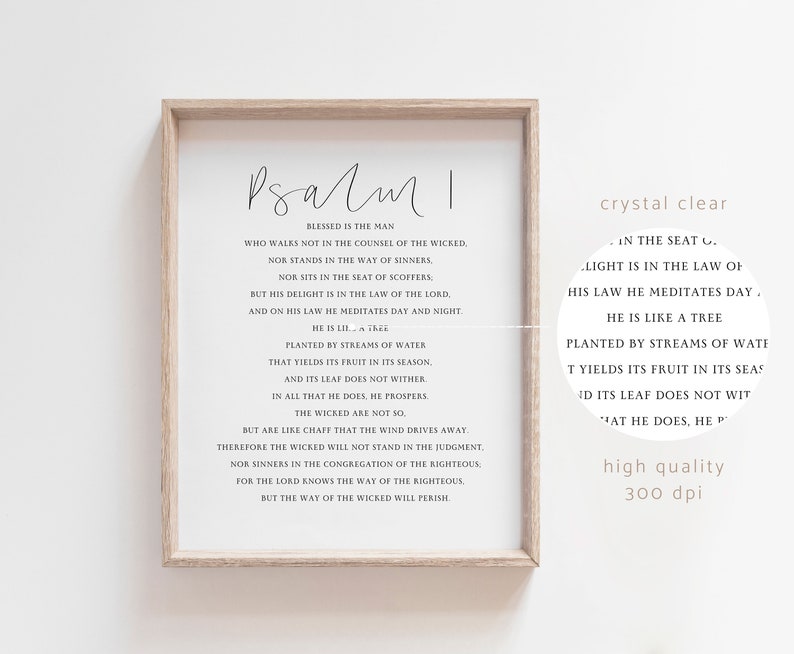 Psalm 1
BLESSED IS THE MAN
WHO WALKS NOT IN THE COUNSEL OF THE WICKED,
NOR STANDS IN THE WAY OF SINNERS,
NOR SITS IN THE SEAT OF SCOFFERS;
BUT HIS DELIGHT IS IN THE LAW OF THE LORD,
AND ON HIS LAW HE MEDITATES DAY AND NIGHT.
HE IS LIKE A TREE
PLANTED BY STREAMS OF WATER
THAT YIELDS ITS FRUIT IN ITS SEASON,
AND ITS LEAF DOES NOT WITHER.
IN ALL THAT HE DOES, HE PROSPERS.
THE WICKED ARE NOT SO,
BUT ARE LIKE CHAFF THAT THE WIND DRIVES AWAY.
THEREFORE THE WICKED WILL NOT STAND IN THE JUDGMENT,
NOR SINNERS IN THE CONGREGATION OF THE RIGHTEOUS;
FOR THE LORD KNOWS THE WAY OF THE RIGHTEOUS,
BUT THE WAY OF THE WICKED WILL PERISH.
crystal clear
IN THE SEAT
LIGHT IS IN THE LAW OF
HIS LAW HE MEDITATES DAY
HE IS LIKE A TREE
PLANTED BY STREAMS OF WATE
T YIELDS ITS FRUIT IN ITS SEAS
ND ITS LEAF DOES NOT WIT
HAT HE DOES, HE P
high quality
300 dpi